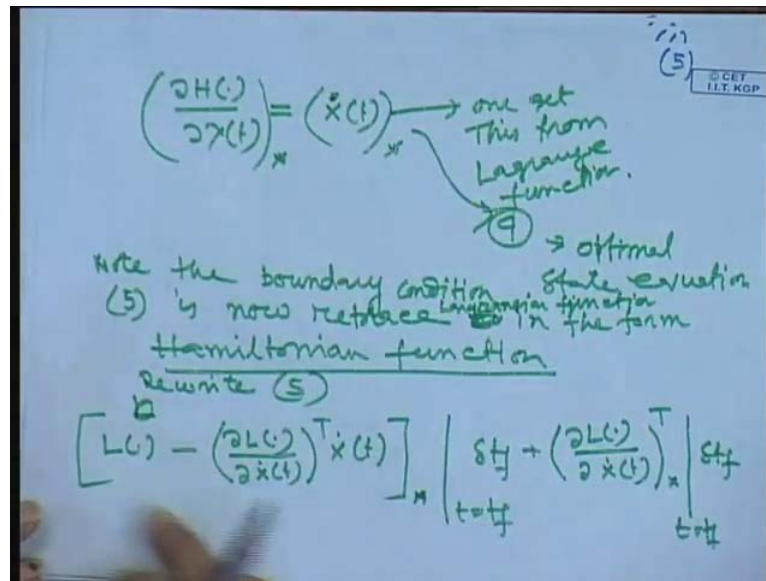 (5)
© CET
I.I.T. KGP
(∂H(·)/∂λ(t))_* = (ẋ(t))_* → one get
This from
Lagrange
function.
(9)
→ optimal
Note the boundary condition State equation
(5) is now replace Lagrangian function in the form
Hamiltonian function
Rewrite (5)
[L(·) − (∂L(·)/∂ẋ(t))^T ẋ(t)]_* |_{t=tf} δtf + (∂L(·)/∂ẋ(t))^T_* |_{t=tf} δtf